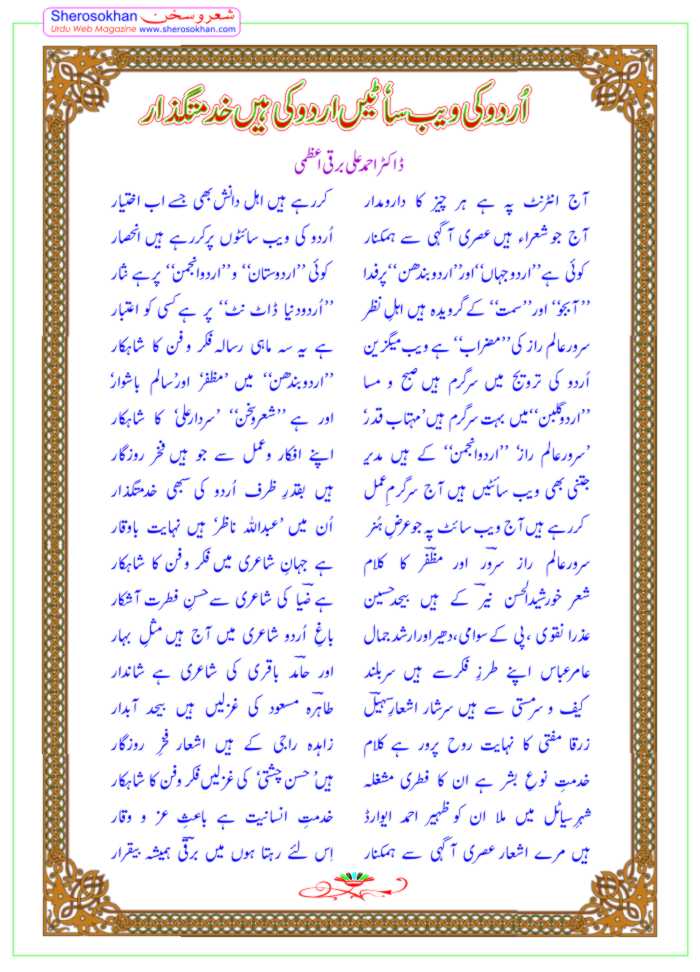 Sherosokhan شعر و سخن
Urdu Web Magazine www.sherosokhan.com
اُردو کی ویب سائٹیں اردو کی ہیں خدمتگذار
ڈاکٹر احمد علی برقی اعظمی
آج انٹرنٹ پہ ہے ہر چیز کا دارومدار کررہے ہیں اہل دانش بھی جسے اب اختیار
آج جو شعراء ہیں عصری آگہی سے ہمکنار اُردو کی ویب سائٹوں پر کررہے ہیں انحصار
کوئی ہے ’’اردو جہاں‘‘ اور ’’اردو بندھن‘‘ پر فدا کوئی ’’اردوستان‘‘ و ’’اردوانجمن‘‘ پر ہے نثار
’’آبجو‘‘ اور ’’سمت‘‘ کے گرویدہ ہیں اہلِ نظر ’’اُردودنیا ڈاٹ نٹ‘‘ پر ہے کسی کو اعتبار
سرورعالم راز کی ’’مضراب‘‘ ہے ویب میگزین ہے یہ سہ ماہی رسالہ فکر و فن کا شاہکار
اُردو کی ترویج میں سرگرم ہیں صبح و مسا ’’اردوبندھن‘‘ میں ’مظفر‘ اور ’سالم باشوار‘
’’اردوگلبن‘‘ میں بہت سرگرم ہیں ’مہتاب قدر‘ اور ہے ’’شعروسخن‘‘ ’سردارعلی‘ کا شاہکار
’سرورعالم راز‘ ’’اردوانجمن‘‘ کے ہیں مدیر اپنے افکار وعمل سے جو ہیں فخرِ روزگار
جتنی بھی ویب سائٹیں ہیں آج سرگرمِ عمل ہیں بقدرِ ظرف اُردو کی سبھی خدمتگذار
کررہے ہیں آج ویب سائٹ پہ جو عرضِ ہُنر اُن میں ’عبداللہ ناظر‘ ہیں نہایت باوقار
سرورعالم راز سرور اور مظفر کا کلام ہے جہانِ شاعری میں فکر و فن کا شاہکار
شعر خورشیدالحسن نیر کے ہیں بیحد حسین ہے ضیا کی شاعری سے حسنِ فطرت آشکار
عذرا نقوی ،پی کے سوامی، دھیر اور ارشد جمال باغِ اُردو شاعری میں آج ہیں مثلِ بہار
عامرعباس اپنے طرزِ فکر سے ہیں سربلند اور حامد باقری کی شاعری ہے شاندار
کیف و سرمستی سے ہیں سرشار اشعارِ سہیل طاہرہ مسعود کی غزلیں ہیں بیحد آبدار
زرقا مفتی کا نہایت روح پرور ہے کلام زاہدہ راجی کے ہیں اشعار فخرِ روزگار
خدمتِ نوعِ بشر ہے ان کا فطری مشغلہ ہیں ’حسن چشتی‘ کی غزلیں فکر و فن کا شاہکار
شہرِ سیاٹل میں ملا ان کو ظہیر احمد ایوارڈ خدمتِ انسانیت ہے باعثِ عز و وقار
ہیں مرے اشعار عصری آگہی سے ہمکنار اِس لئے رہتا ہوں میں برقی ہمیشہ بیقرار